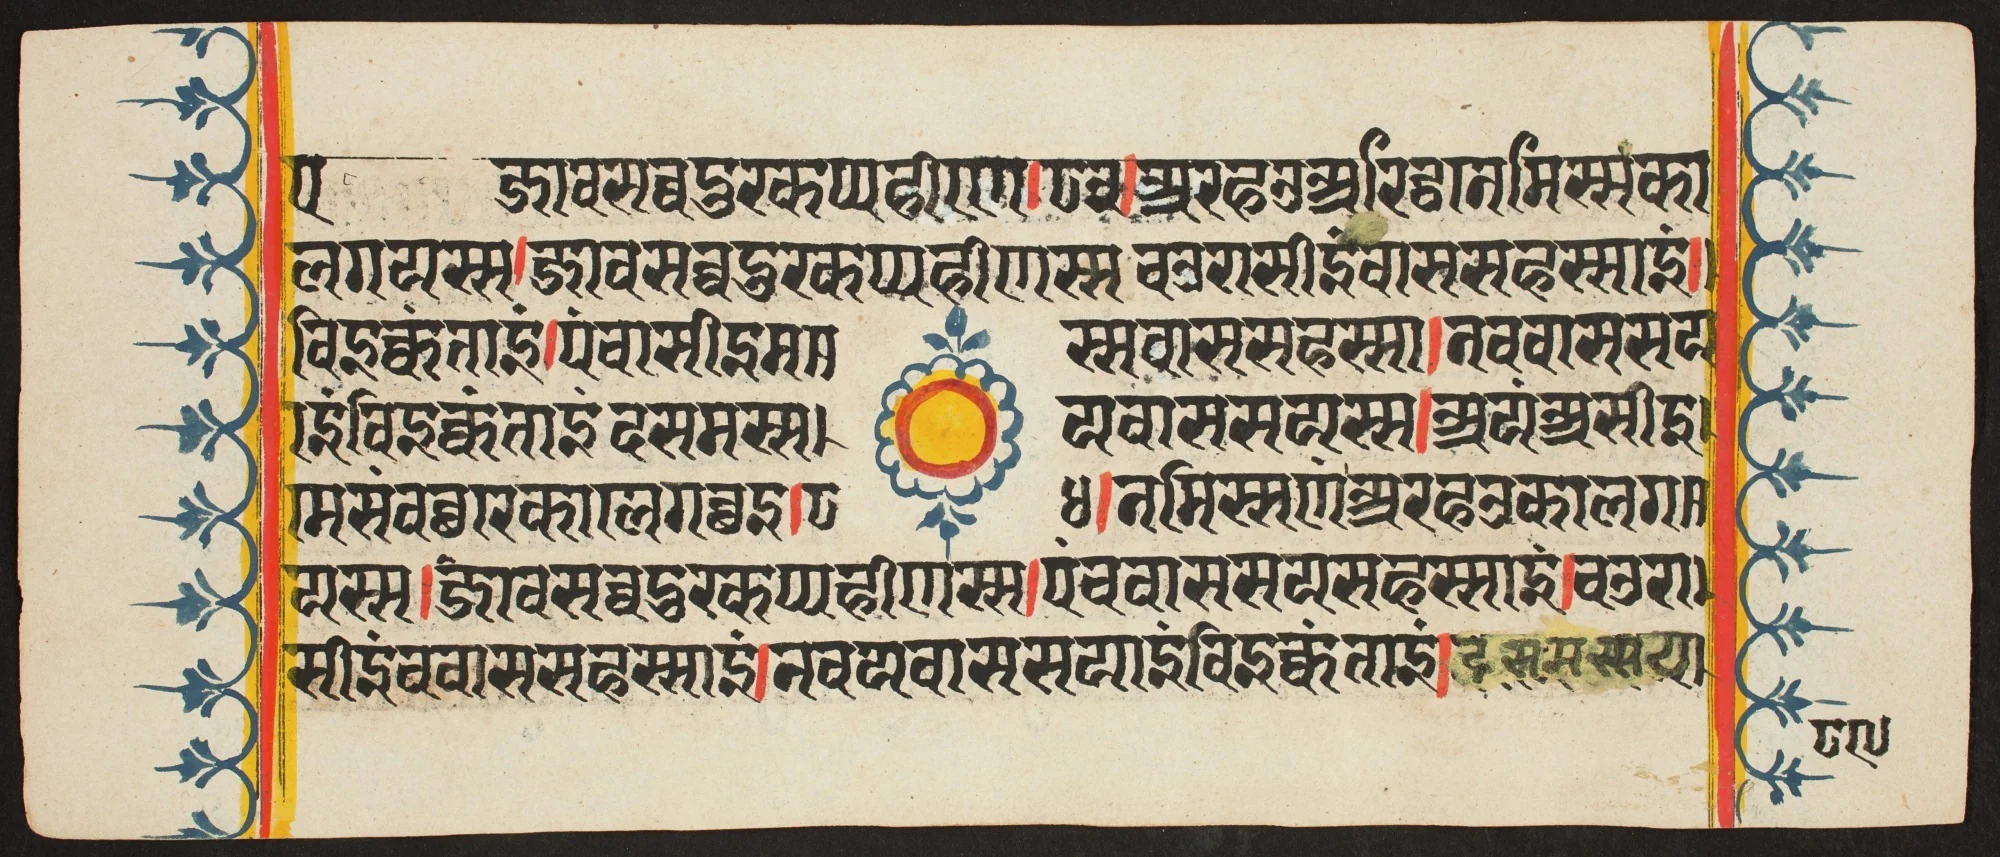 ए जावसव्वदुरकप्पहीण।८३।अरहउअरिट्ठनेमिस्सका
लगयस्स।जावसव्वदुरकप्पहीणस्स चउरासीइंवाससहस्साइं।
विइक्कंताइं।पंचासीइमस्स वाससहस्सा।नववाससया
इंविइक्कंताइं दसमस्स यवाससयस्स।अयंअसीइ
मेसंवच्छरेकालेगच्छइ।८ ४।नमिस्सणंअरहउकालग
यस्स।जावसव्वदुरकप्पहीणस्स।पंचवाससयसहस्साइं।चउरा
सीइंचवाससहस्साइं।नवयवाससयाइंविइक्कंताइं।दसमस्सया